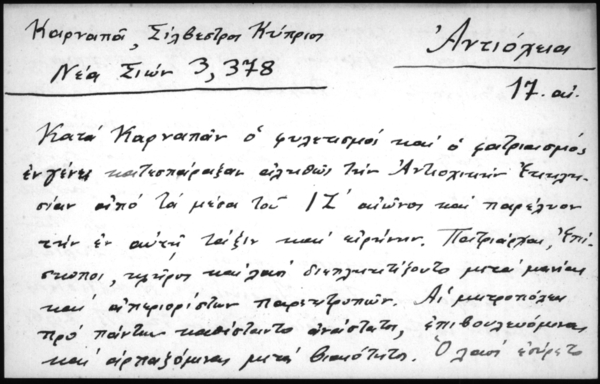 Καρναπᾶ, Σίλβεστρος Κύπριος
Ἀντιόχεια
Νέα Σιών 3, 378
17. αἰ.
Κατά Καρναπᾶν ὁ φυλετισμός καί ὁ φατριασμός
ἐν γένει κατεσπάραξαν ἀληθῶς τήν Ἀντιοχικήν Ἐκκλη-
σίαν ἀπό τά μέσα τοῦ 17 αἰῶνος καί παρέλυον
τήν ἐν αὐτῇ τάξιν καί εἰρήνην. Πατριάρχαι, Ἐπί-
σκοποι, κλῆρος καί λαός διεπληκτίζοντο μετά μανίας
καί ἀπεριορίστων παρεκτροπῶν. Αἱ μητροπόλεις
πρό πάντων καθίσταντο ἀνάστατοι, ἐπιβουλευόμεναι
καί ἁρπαζόμεναι μετά βιαιότητος. Ὁ λαός ἐσύρετο